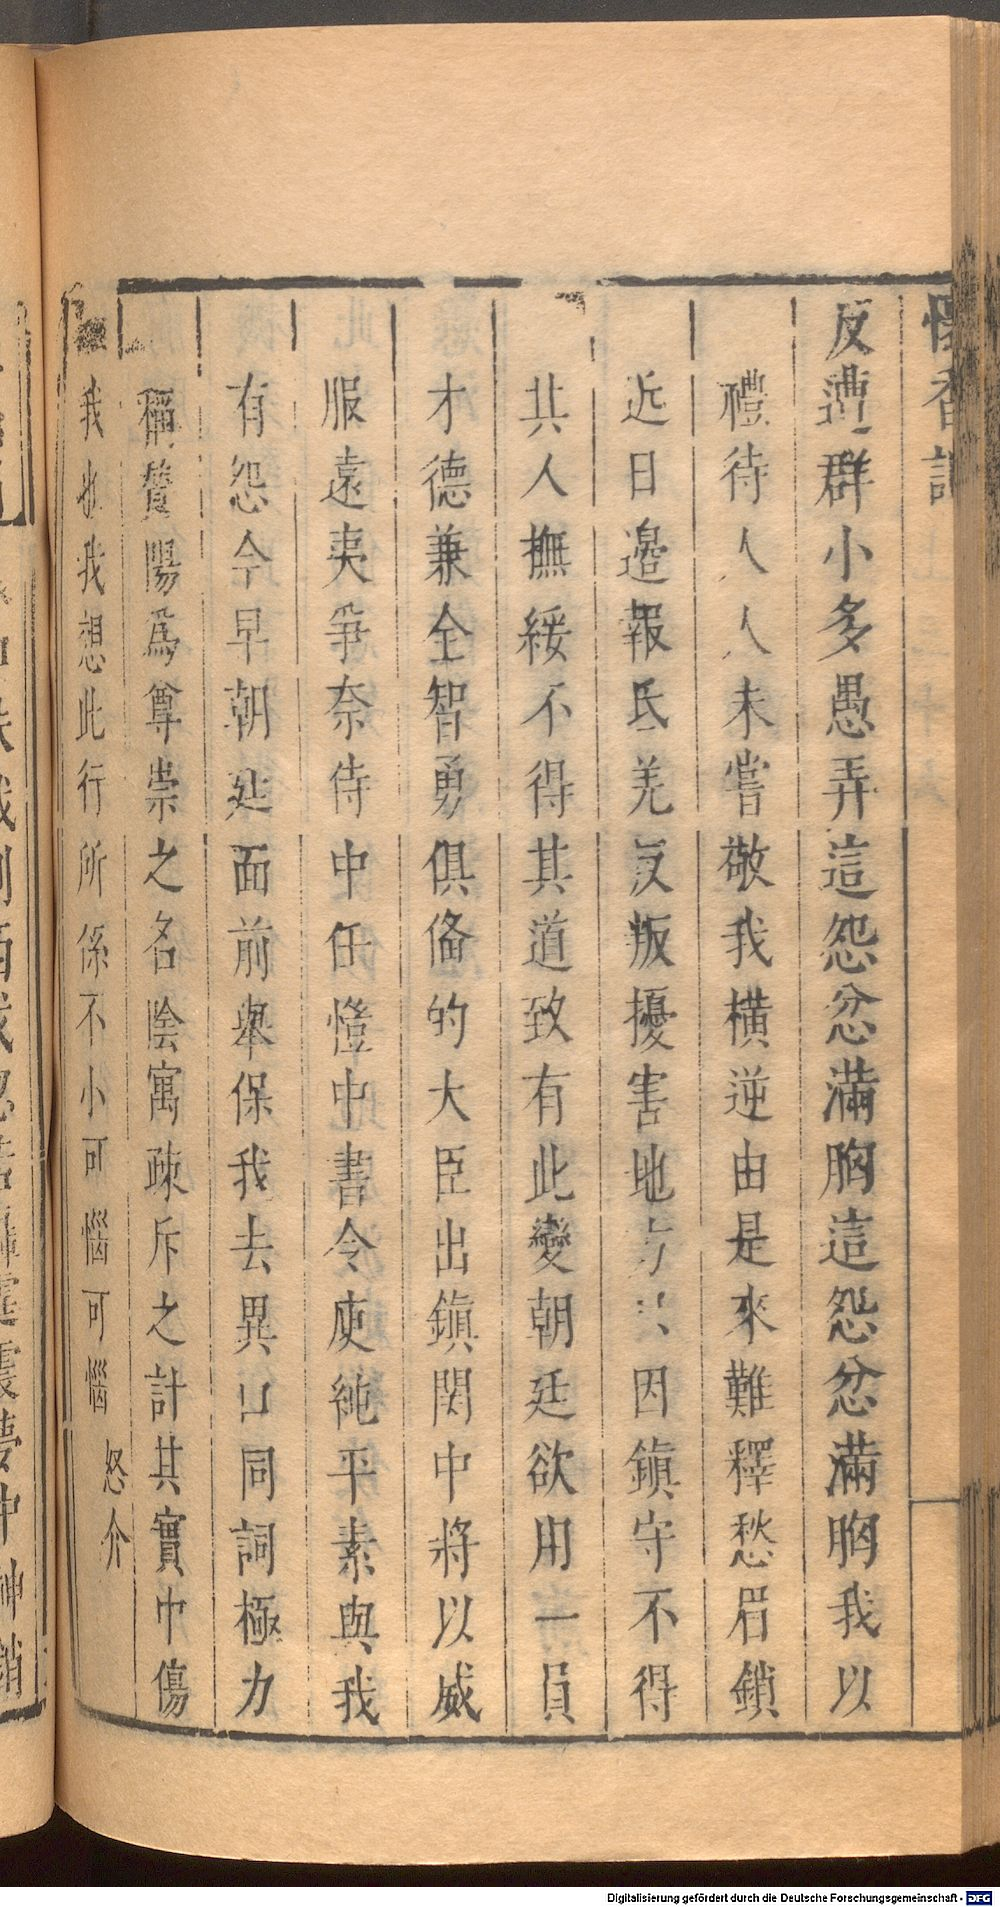 懷香記
反遭群小多愚弄這怨忿滿胸這怨忿滿胸我以
禮待人人未嘗敬我橫逆由是來難釋愁眉鎖
近日邉報氐羌反叛擾害地方只因鎮守不得
其人撫綏不得其道致有此變朝廷欲用一員
才德兼全智勇俱偹的大臣出鎮関中將以威
服遠夷爭奈侍中任愷中書令庾純平素與我
有怨今早朝廷面前舉保我去異口同詞極力
稱贊陽爲尊崇之名陰寓疎斥之計其實中傷
我也我想此行所係不小可惱可惱
怒介
Digitalisierung gefördert durch die Deutsche Forschungsgemeinschaft - DFG